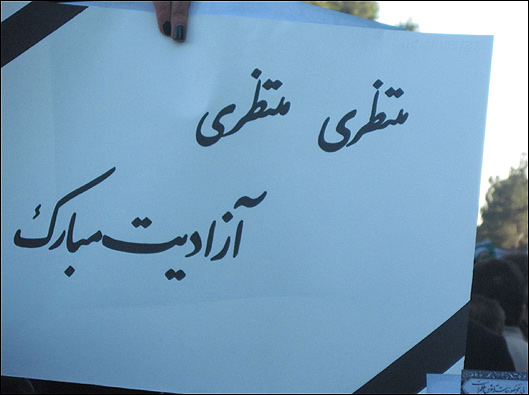 منتظری منتظری
آزادیت مبارک